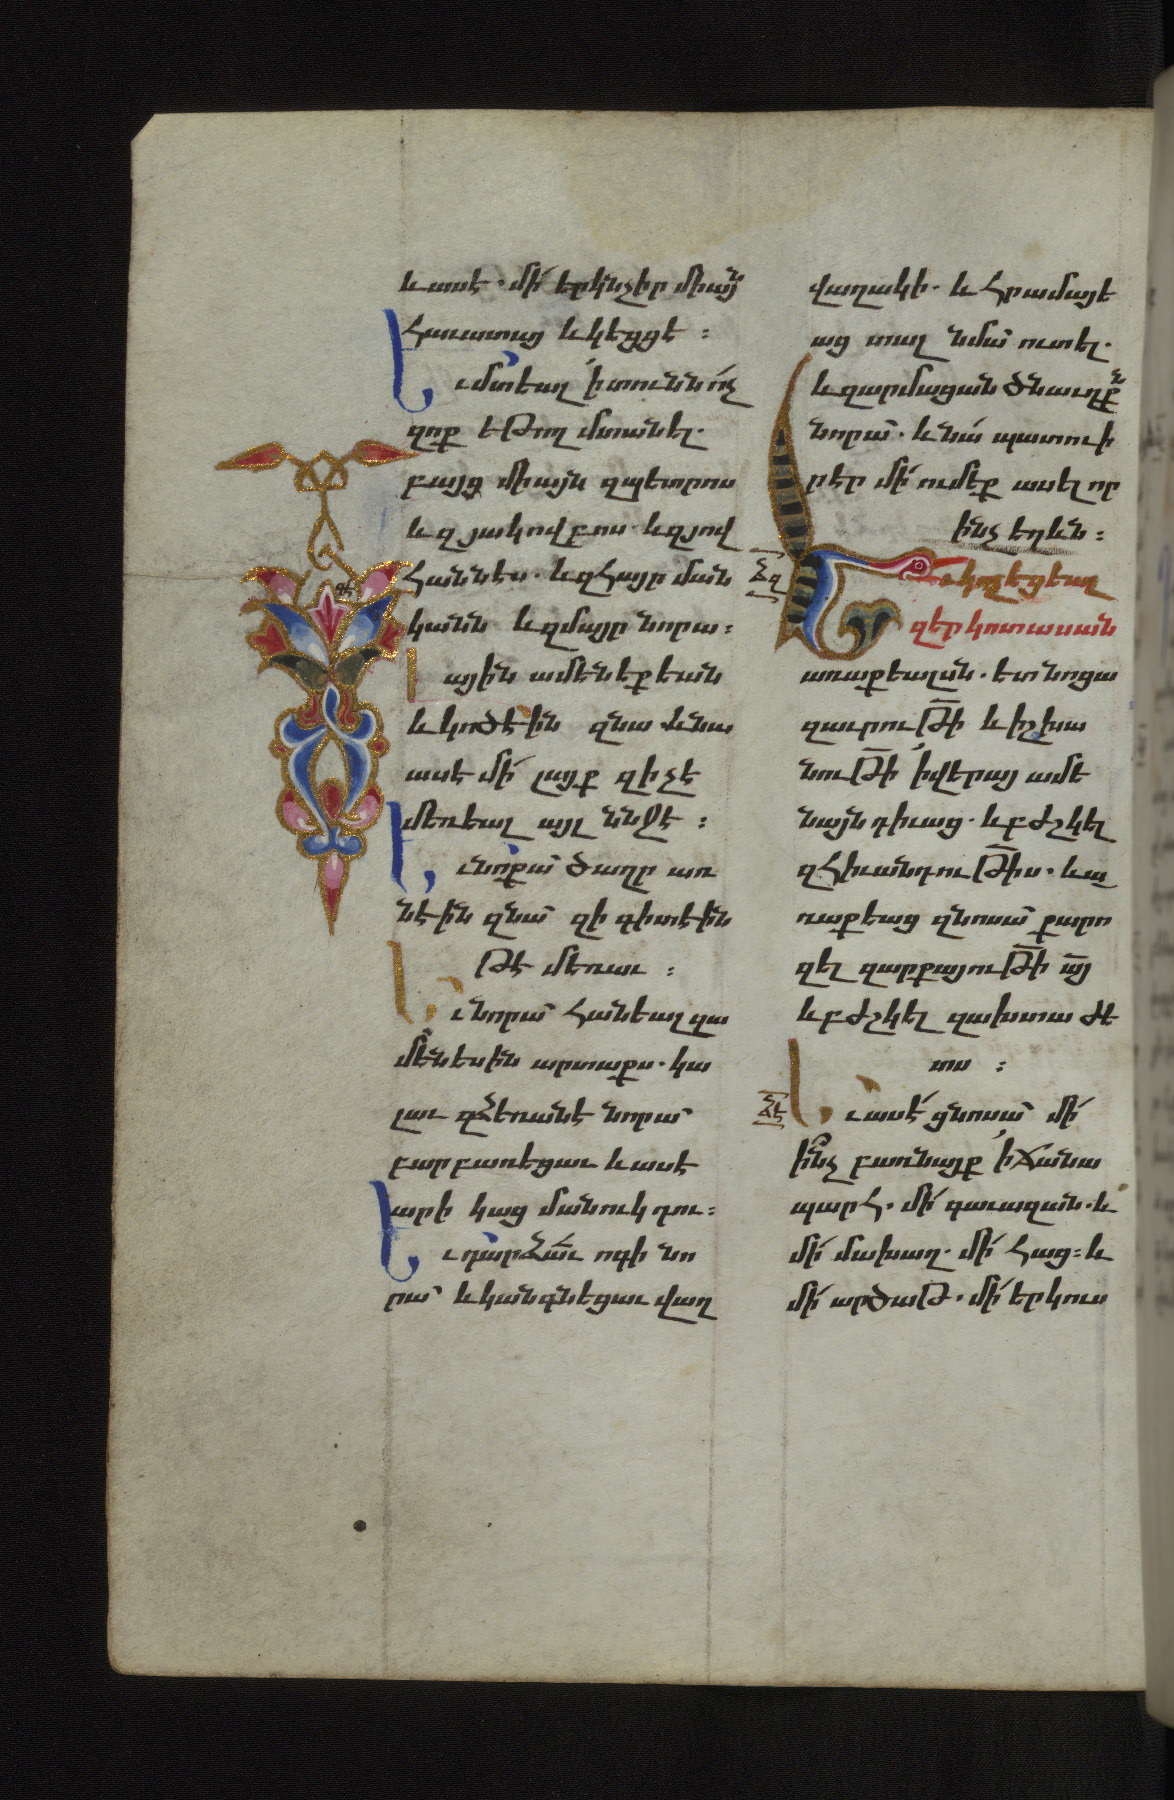 և ասէ. մի՛ երկնչիր միայն
հաւատայ և կեցցէ :
Եւ մտեալ ՛ի տունն ո՛չ
զոք եթող մտանել.
բայց միայն զպետրոս
և զյակովբոս. և զյով
հաննես. և զհայր ման
կանն և զմայր նորա :
Լային ամենեքեան
և կոծէին զնա և նա
ասէ մի՛ լայք զի չէ
մեռեալ այլ ննջէ :
Եւ նոքա՛ ծաղր առ
նէին զնա՛ զի գիտէին
թէ մեռաւ :
Եւ նորա՛ հանեալ զա
մենեսին արտաքս. կա
լաւ զձեռանէ նորա՛
բարբառեցաւ և ասէ
արի կաց մանուկ դու :
Եւ դարձաւ ոգի նո
րա՛ և կանգնեցաւ վաղ
վաղակի. և հրամայե
աց տալ նմա՛ ուտել.
և զարմացան ծնաւղքն
նորա՛. և նա՛ պատուի
րեր մի՛ ումեք ասել որ
ինչ եղևն :
Եւ կոչեցեալ
զերկոտասան
առաքեալսն. ետ նոցա
զաւրութի̅ և իշխա
նութի̅ ՛ի վերայ ամե
նայն դիւաց. և բժշկել
զհիւանդութի̅ս. և ա
ռաքեաց զնոսա՛ քարո
զել զարքայութի̅ ա̅յ
և բժշկել զախտաժե
տս :
Եւ ասէ՛ ցնոսա՛ մի՛
ինչ բառնայք ՛ի ճանա
պարհ. մի՛ գաւազան. և
մի՛ մախաղ. մի՛ հաց : և
մի՛ արծաթ. մի՛ երկուս